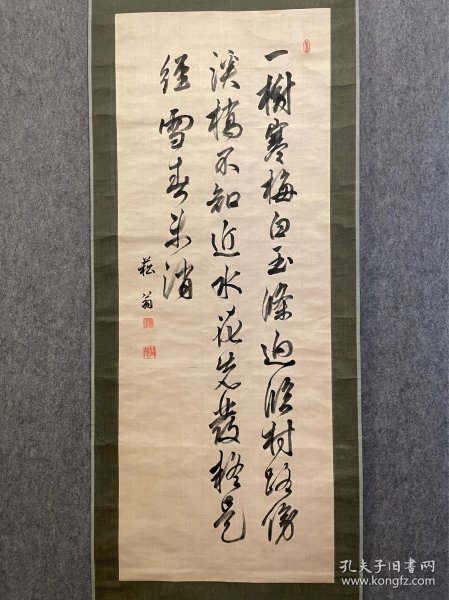 一樹寒梅白玉條迥臨村路傍
溪橋不知近水花先發疑是
經雪春未消
菘翁
孔夫子旧书网
www.kongfz.com